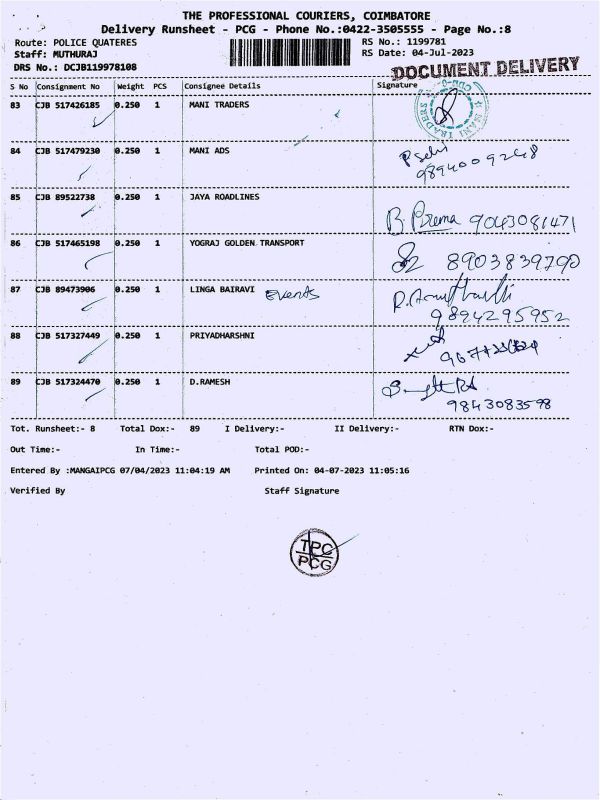 THE PROFESSIONAL COURIERS, COIMBATORE
Delivery Runsheet - PCG - Phone No.:0422-3505555 - Page No.:8
Route: POLICE QUATERES RS No.: 1199781
Staff: MUTHURAJ RS Date: 04-Jul-2023
DRS No.: DCJB119978108
DOCUMENT DELIVERY
S No Consignment No Weight PCS Consignee Details Signature
83 CJB 517426185 0.250 1 MANI TRADERS
MANI TRADERS
84 CJB 517479230 0.250 1 MANI ADS
9894009248
85 CJB 89522738 0.250 1 JAYA ROADLINES
B. Prema 9043081471
86 CJB 517465198 0.250 1 YOGRAJ GOLDEN TRANSPORT
8903839790
87 CJB 89473906 0.250 1 LINGA BAIRAVI Events
9894295952
88 CJB 517327449 0.250 1 PRIYADHARSHNI
89 CJB 517324470 0.250 1 D.RAMESH
9843083598
Tot. Runsheet:- 8 Total Dox:- 89 I Delivery:- II Delivery:- RTN Dox:-
Out Time:- In Time:- Total POD:-
Entered By :MANGAIPCG 07/04/2023 11:04:19 AM Printed On: 04-07-2023 11:05:16
Verified By Staff Signature
TPC
PCG